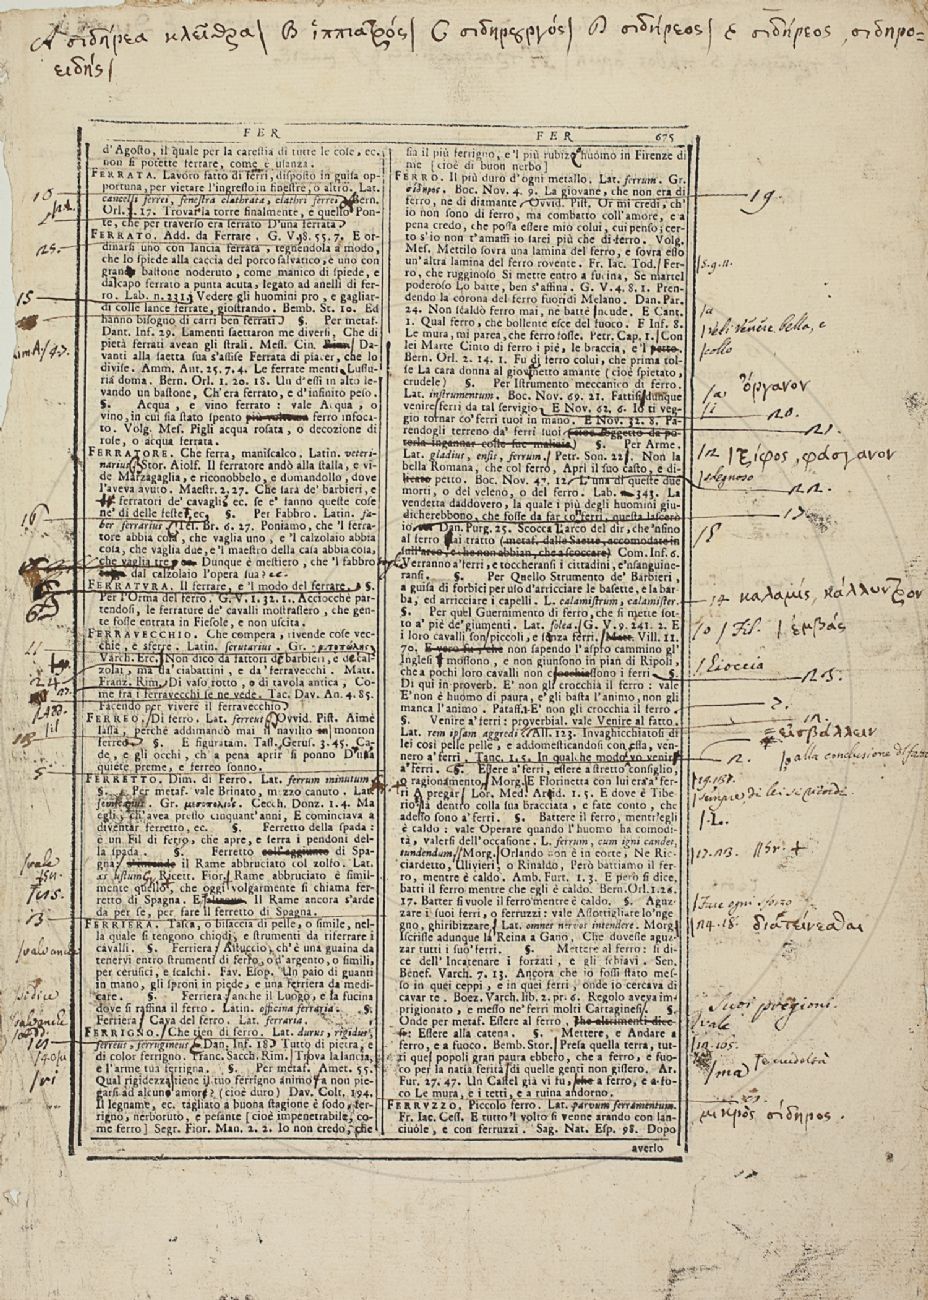 A σιδήρεα κλεῖθρα| B ἱππιατρός| C σιδηρεργός| D σιδήρεος| E σιδήρεος, σιδηρο=
ειδής|
FER
FER 675
d'Agosto, il quale per la carestia di tutte le cose, ec.
non si potette ferrare, come è usanza.
FERRATA. Lavoro fatto di ferri, disposto in guisa op-
portuna, per vietare l'ingresso in finestre, o altro. Lat.
cancelli ferrei, fenestra clathrata, clathri ferrei. Bern.
Orl. 1. 17. Trovar la torre finalmente, e quello Pon-
te, che per traverso era serrato D'una ferrata.
FERRATO. Add. da Ferrare. G. V. 8. 55. 7. E or-
dinarsi uno con lancia ferrata, tegnendola a modo,
che lo spiede alla caccia del porco salvatico, e uno con
grande bastone noderuto, come manico di spiede, e
dal capo ferrato a punta acuta, legato ad anelli di fer-
ro. Lab. n. 231. Vedere gli huomini pro, e gagliar-
di colle lance ferrate, giostrando. Bemb. St. 10. Ed
hanno bisogno di carri ben ferrati. §. Per metaf.
Dant. Inf. 29. Lamenti saettaron me diversi, Che di
pietà ferrati avean gli strali. Mess. Cin. Da-
vanti alla saetta sua s'assise Ferrata di piacer, che lo
divise. Amm. Ant. 25. 7. 4. Le ferrate menti Lussu-
ria doma. Bern. Orl. 1. 20. 18. Un d'essi in alto le-
vando un bastone, Ch'era ferrato, e d'infinito peso.
§. Acqua, e vino ferrato: vale Acqua, o
vino, in cui sia stato spento ferro infoca-
to. Volg. Mes. Pigli acqua rosata, o decozione di
rose, o acqua ferrata.
FERRATORE. Che ferra, maniscalco. Latin. veteri-
narius. Stor. Aiolf. Il ferratore andò alla stalla, e vi-
de Marzagaglia, e riconobbelo, e domandollo, dove
l'aveva avuto. Maestr. 2. 27. Che sarà de' barbieri, e
ferratori de' cavagli, ec. se e' fanno queste cose
ne' dì delle feste, ec. §. Per Fabbro. Latin. fa-
ber ferrarius. Tes. Br. 6. 27. Poniamo, che 'l ferra-
tore abbia cosa, che vaglia uno, e 'l calzolaio abbia
cosa, che vaglia due, e 'l maestro della casa abbia cosa,
che vaglia tre, Dunque è mestiero, che 'l fabbro
dal calzolaio l'opera sua, ec.
FERRATURA. Il ferrare, e 'l modo del ferrare. §.
Per l'Orma del ferro. G. V. 1. 32. 1. Acciocchè par-
tendosi, le ferrature de' cavalli mostrassero, che gen-
te fosse entrata in Fiesole, e non uscita.
FERRAVECCHIO. Che compera, rivende cose vec-
chie, e sferre. Latin. scrutarius. Gr.
Varch. Erc. Non dico da fattori de' barbieri, e de' cal-
zolai, ma da' ciabattini, e da' ferravecchi. Matt.
Franz. Rim. Di vaso rotto, o di tavola antica, Co-
me fra i ferravecchi se ne vede. Tac. Dav. An. 4. 85.
Facendo per vivere il ferravecchio.
FERREO. Di ferro. Lat. ferreus. Ovvid. Pist. Aimè
lassa, perchè addimandò mai il navilio montor
ferreo. §. E figuratam. Tass. Gerus. 3. 45. Ca-
de, e gli occhi, ch'a pena aprir si ponno D'una
quiete preme, e ferreo sonno.
FERRETTO. Dim. di Ferro. Lat. ferrum minutum.
§. Per metaf. vale Brinato, mezzo canuto. Lat.
Gr. Cecch. Donz. 1. 4. Ma
egli, ch'avea presso cinquant'anni, E cominciava a
diventar ferretto, ec. §. Ferretto della spada:
è un Fil di ferro, che apre, e serra i pendoni del-
la spada. §. Ferretto di Spa-
gna: il Rame abbruciato col zolfo. Lat.
æs ustum. Ricett. Fior. Rame abbruciato è simil-
mente quello, che oggi volgarmente si chiama fer-
retto di Spagna. E Il Rame ancora s'arde
da per se, per fare il ferretto di Spagna.
FERRIERA. Tasca, o bisaccia di pelle, o simile, nel-
la quale si tengono chiodi, e strumenti da riferrare i
cavalli. §. Ferriera, Astuccio, ch'è una guaina da
tenervi entro strumenti di ferro, o d'argento, o simili,
per cerusici, e scalchi. Fav. Esop. Un paio di guanti
in mano, gli sproni in piede, e una ferriera da medi-
care. §. Ferriera, anche il Luogo, e la fucina
dove si raffina il ferro. Latin. officina ferraria. §.
Ferriera, Cava del ferro. Lat. ferraria.
FERRIGNO. Che tien di ferro. Lat. durus, rigidus,
ferreus, ferrugineus. Dan. Inf. 18. Tutto di pietra, e
di color ferrigno. Franc. Sacch. Rim. Trova la lancia,
e l'arme tua ferrigna. §. Per metaf. Amet. 55.
Qual rigidezza tiene il tuo ferrigno animo, sa non pie-
garsi ad alcuno amore? (cioè duro) Dav. Colt. 194.
Il legname, ec. tagliato a buona stagione è sodo, fer-
rigno, nerboruto, e pesante (cioè impenetrabile, co-
me ferro) Segr. Fior. Man. 2. 2. Io non credo, che
sia il più ferrigno, e 'l più rubizo huomo in Firenze di
me (cioè di buon nerbo)
FERRO. Il più duro d'ogni metallo. Lat. ferrum. Gr.
σίδηρος. Boc. Nov. 4. 9. La giovane, che non era di
ferro, ne di diamante. Ovvid. Pist. Or mi credi, ch'
io non sono di ferro, ma combatto coll'amore, e a
pena credo, che possa essere mio colui, cui penso; cer-
to s'io non t'amassi io sarei più che di ferro. Volg.
Mes. Mettilo sovra una lamina del ferro, e sovra esso
un'altra lamina del ferro rovente. Fr. Iac. Tod. Fer-
ro, che rugginoso Si mette entro a fucina, Se martel
poderoso Lo batte, ben s'affina. G. V. 4. 8. 1. Pren-
dendo la corona del ferro fuor di Melano. Dan. Par.
24. Non scaldò ferro mai, ne battè incude. E Cant.
1. Qual ferro, che bollente esce del fuoco. E Inf. 8.
Le mura, mi parea, che ferro fosse. Petr. Cap. 1. Con
lei Marte Cinto di ferro i piè, le braccia, e 'l
Bern. Orl. 2. 14. 1. Fu di ferro colui, che prima tol-
se La cara donna al giovinetto amante (cioè spietato,
crudele) §. Per Istrumento meccanico di ferro.
Lat. instrumentum. Boc. Nov. 69. 21. Fattisi dunque
venire ferri da tal servigio. E Nov. 62. 6. Io ti veg-
gio tornar co' ferri tuoi in mano. E Nov. 32. 8. Pa-
rendogli terreno da' ferri suoi
§. Per Arme.
Lat. gladius, ensis, ferrum. Petr. Son. 22. Non la
bella Romana, che col ferro, Aprì il suo casto, e di-
petto. Boc. Nov. 47. 12. L'una di queste due
morti, o del veleno, o del ferro. Lab. 343. La
vendetta daddovero, la quale i più degli huomini giu-
dicherebbono, che fosse da far co' ferri, questa lascerò
io. Dan. Purg. 25. Scocca L'arco del dir, che 'nfino
al ferro hai tratto (metaf. dalle Saette, accomodate in
sull'arco, e che non abbian, che a scoccare) Com. Inf. 6.
Verranno a' ferri, e toccheransi i cittadini, e 'nsanguine-
ransi. §. Per Quello Strumento de' Barbieri,
a guisa di forbici per uso d'arricciare le basette, e la bar-
ba, ed arricciare i capelli. L. calamistrum, calamister.
§. Per quel Guernimento di ferro, che si mette sot-
to a' piè de' giumenti. Lat. solea. G. V. 9. 241. 2. E
i loro cavalli son piccoli, e senza ferri. Matt. Vill. 11.
70. non sapendo l'aspro cammino gl'
Inglesi mossono, e non giunsono in pian di Ripoli,
che a pochi loro cavalli non crocchiassono i ferri. §.
Di qui in proverb. E' non gli crocchia il ferro: vale
E' non è huomo di paura, e gli basta l'animo, non gli
manca l'animo. Pataff. 1. E' non gli crocchia il ferro.
§. Venire a' ferri: proverbial. vale Venire al fatto.
Lat. rem ipsam aggredi. All. 123. Invaghicchiatosi di
lei così pelle pelle, e addomesticandosi con essa, ven-
nero a' ferri. Tanc. 1. 5. In qualche modo vo venir
a' ferri. §. Essere a' ferri, essere a stretto consiglio,
o ragionamento. Morg. E Florineta con lui era a' fer-
ri A pregar. Lor. Med. Arid. 1. 5. E dove è Tibe-
rio? là dentro colla sua bracciata, e fate conto, che
adesso sono a' ferri. §. Battere il ferro, mentr'egli
è caldo: vale Operare quando l'huomo ha comodi-
tà, valersi dell'occasione. L. ferrum, cum igni candet,
tundendum. Morg. Orlando non è in corte, Ne Ric-
ciardetto, Ulivieri, o Rinaldo, Però battiamo il fer-
ro, mentre è caldo. Amb. Furt. 1. 3. E però si dice,
batti il ferro mentre che egli è caldo. Bern. Orl. 1. 26.
17. Batter si vuole il ferro mentre è caldo. §. Aguz-
zare i suoi ferri, o ferruzzi: vale Assottigliare lo 'nge-
gno, ghiribizzare. Lat. omnes nervos intendere. Morg.
Iscrisse adunque la Reina a Gano, Che dovesse aguz-
zar tutti i suoi ferri. §. Mettere al ferro: si di-
ce dell'Incatenare i forzati, e gli schiavi. Sen.
Benef. Varch. 7. 13. Ancora che io fossi stato mes-
so in quei ceppi, e in quei ferri, onde io cercava di
cavar te. Boez. Varch. lib. 2. pr. 6. Regolo aveva im-
prigionato, e messo ne' ferri molti Cartaginesi. §.
Onde per metaf. Essere al ferro,
Essere alla catena. §. Mettere, e Andare a
ferro, e a fuoco. Bemb. Stor. Presa quella terra, tut-
ti que' popoli gran paura ebbero, che a ferro, e fuo-
co per la natia ferità di quelle genti non gissero. Ar.
Fur. 27. 47. Un Castel già vi fu, a ferro, e a fo-
co Le mura, e i tetti, e a ruina andorno.
FERRUZZO. Piccolo ferro. Lat. parvum ferramentum.
Fr. Iac. Cess. E tutto 'l volto si venne arando con lan-
ciuole, e con ferruzzi. Sag. Nat. Esp. 98. Dopo
averlo
25.
15
16
11
24
5
13
19.
ὄργανον
20.
21.
ξίφος, φάσγανον
22.
17
18
14 καλαμὶς, κάλλυντρον
|ἐμβάς
|Lioccia
25.
εἰσβάλλειν
12.
|Fare ogni sforzo
διατείνεσθαι
Suoi prigioni.
vale
μικρὸς σίδηρος.